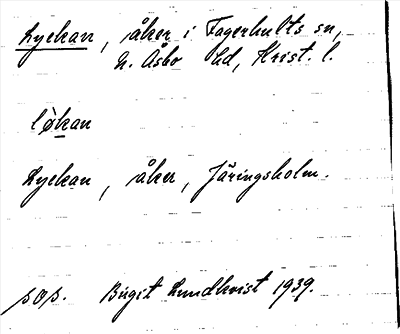 Lyckan, åker i Fagerhults sn,
N. Åsbo hd, Krist. l.
løkan
Lyckan, åker, Järingsholm.
sos. Birgit Lundkvist 1939.